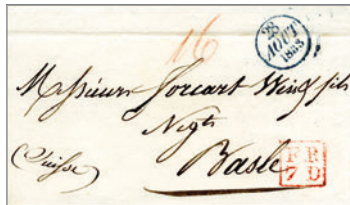 16
28
AOUT
1838
Messieurs Forcart Weis & fils
Negts
Basle
(Suisse)
F R
7 D